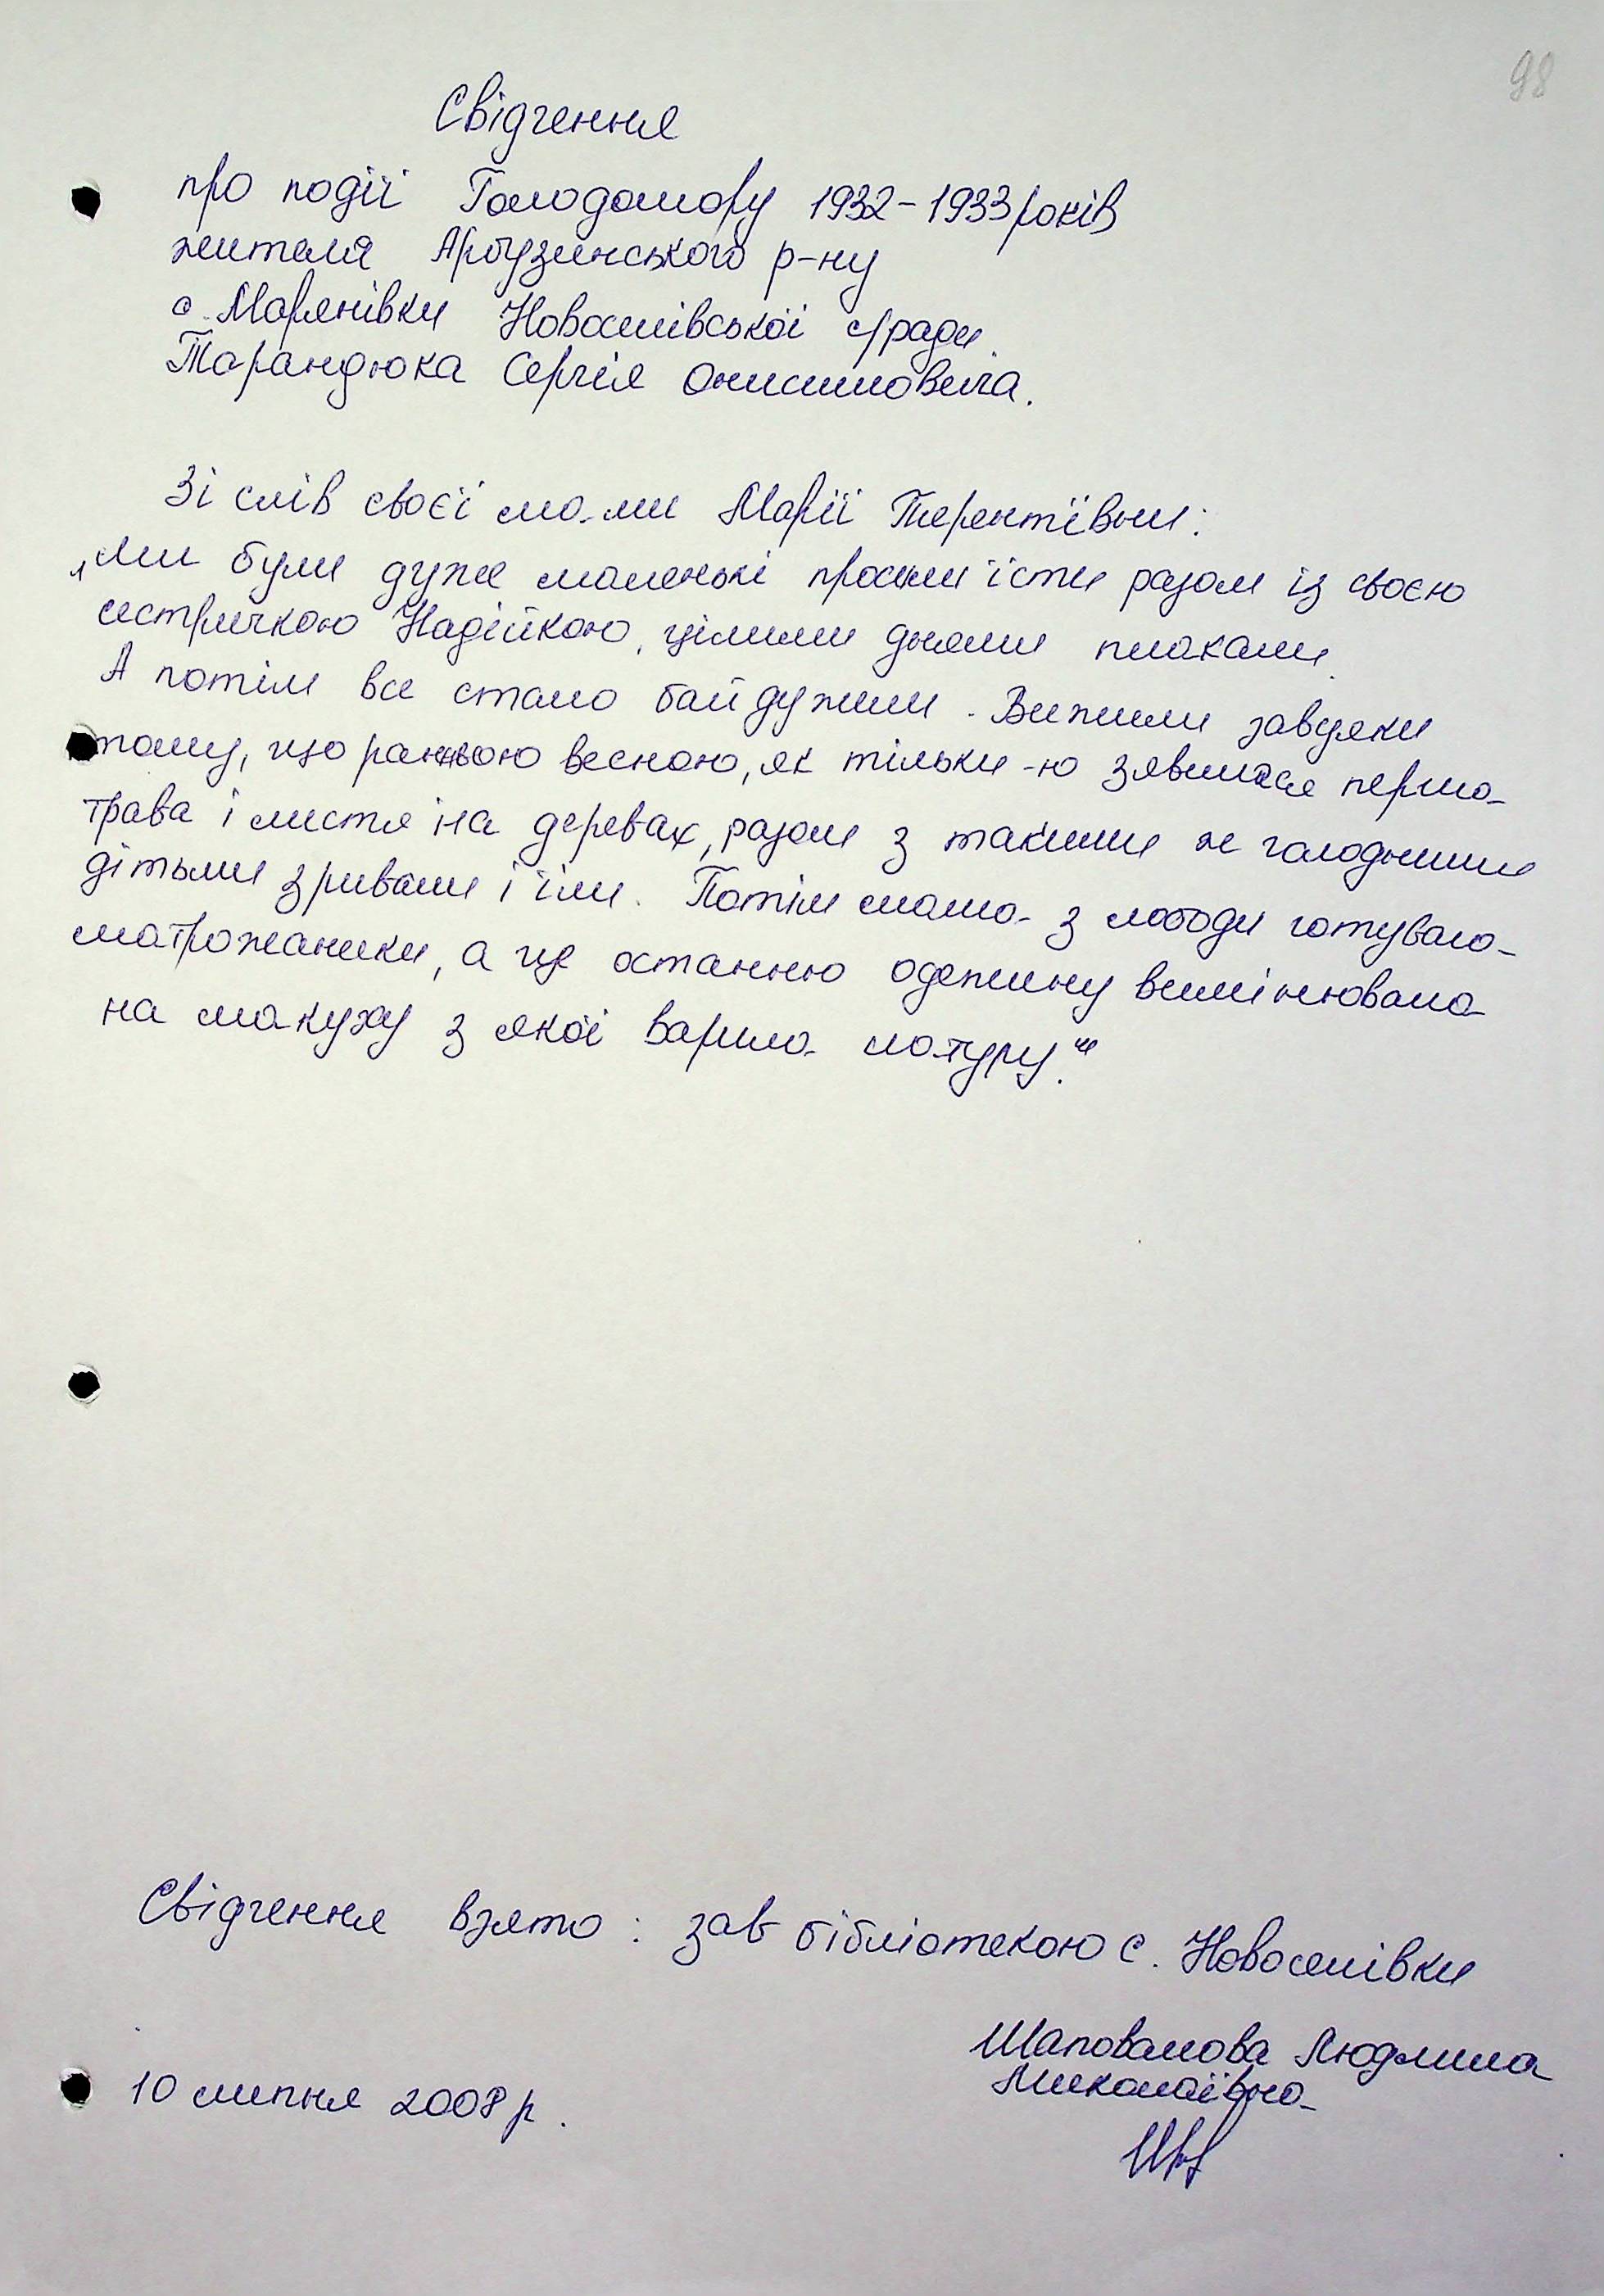 98
Свідчення
про події Голодомору 1932-1933 років
жителя Арбузинського р-ну
с. Мар'янівки Новоселівської с/ради
Тарандюка Сергія Онисимовича.
Зі слів своєї мами Марії Терентіївни:
„Ми були дуже маленькі просили їсти разом із своєю
сестричкою Надійкою, цілими днями плакали.
А потім все стало байдужим. Вижили завдяки
тому, що ранньою весною, як тільки-но зявилася перша
трава і листя на деревах, разом з такими ж голодними
дітьми зривали і їли. Потім мама з лободи готувала
маторжаники, а ще останню одежину вимінювала
на макуху з якої варила затуру."
Свідчення взято: зав бібліотекою с. Новоселівки
Шаповалова Людмила
Миколаївна
10 липня 2008 р.